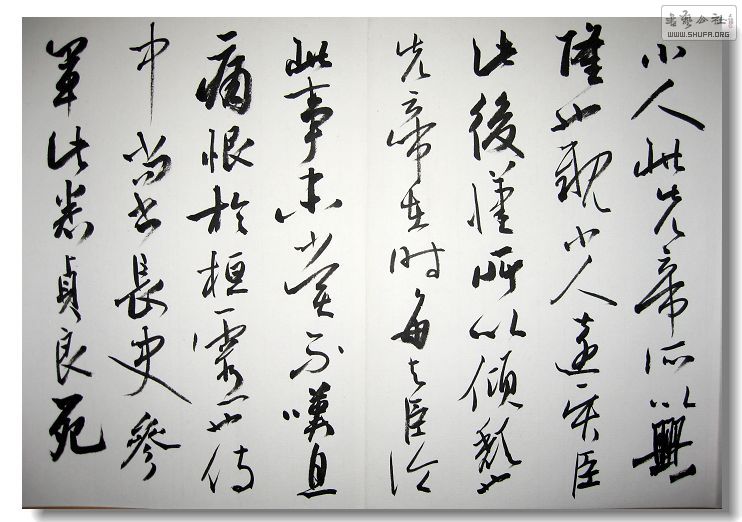 小人此先帝所以興
隆也親小人遠賢臣
此後漢所以傾頹也
先帝在時每与臣論
此事未嘗不嘆息
痛恨於桓靈也侍
中尚書長史參
軍此悉貞良死
书艺公社
WWW.SHUFA.ORG